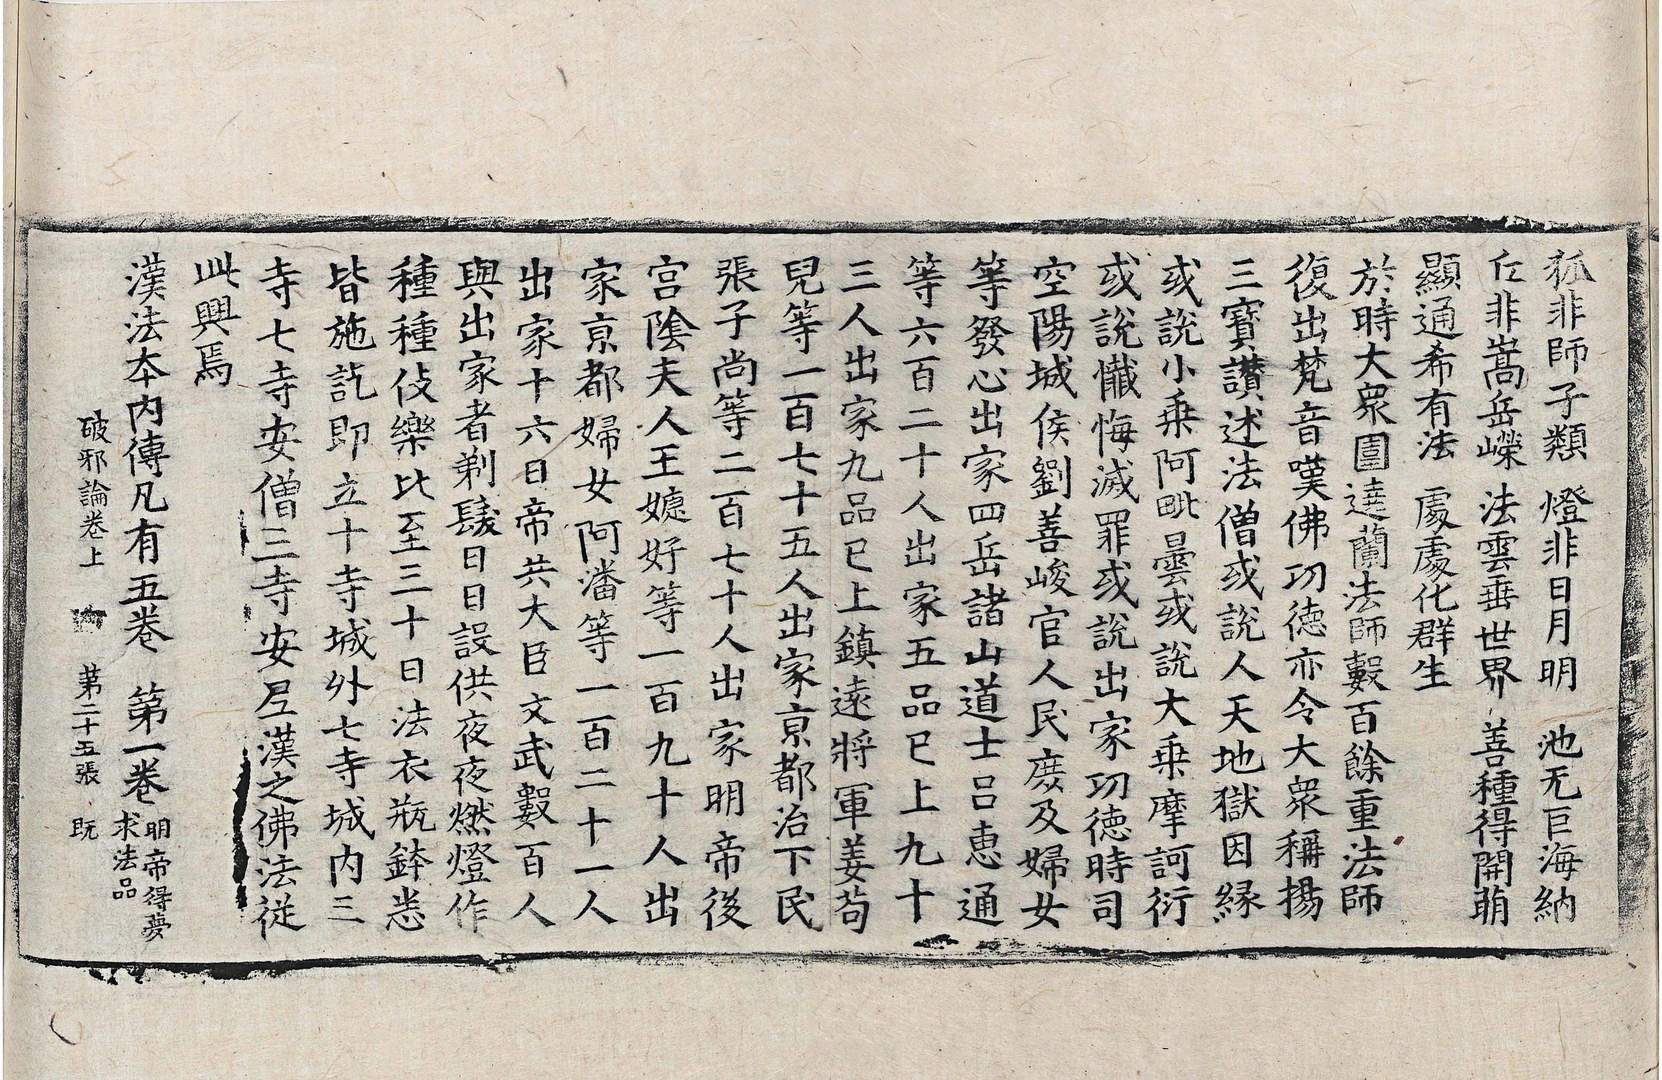 狐非師子類　燈非日月明　池无巨海納
丘非嵩岳嶸　法雲垂世界　善種得開萌
顯通希有法　處處化群生
於時大衆圍遶蘭法師數百餘重法師
復出梵音嘆佛功德亦令大衆稱揚
三寶讃述法僧或說人天地獄因縁
或說小乗阿毗曇或說大乗摩訶衍
或說懺悔滅罪或說出家功德時司
空陽城侯劉善峻官人民庶及婦女
等發心出家四岳諸山道士吕惠通
等六百二十人出家五品已上九十
三人出家九品已上鎮遠將軍姜苟
兒等一百七十五人出家京都治下民
張子尚等二百七十人出家明帝後
宮隂夫人王婕妤等一百九十人出
家京都婦女阿潘等一百二十一人
出家十六日帝共大臣文武數百人
與出家者剃髮日日設供夜夜燃燈作
種種伎樂比至三十日法衣瓶鉢悉
皆施訖即立十寺城外七寺城内三
寺七寺安僧三寺安尼漢之佛法従
此興焉
漢法本内傳凡有五卷　第一卷明帝得夢
求法品
破邪論卷上　第二十五張　既